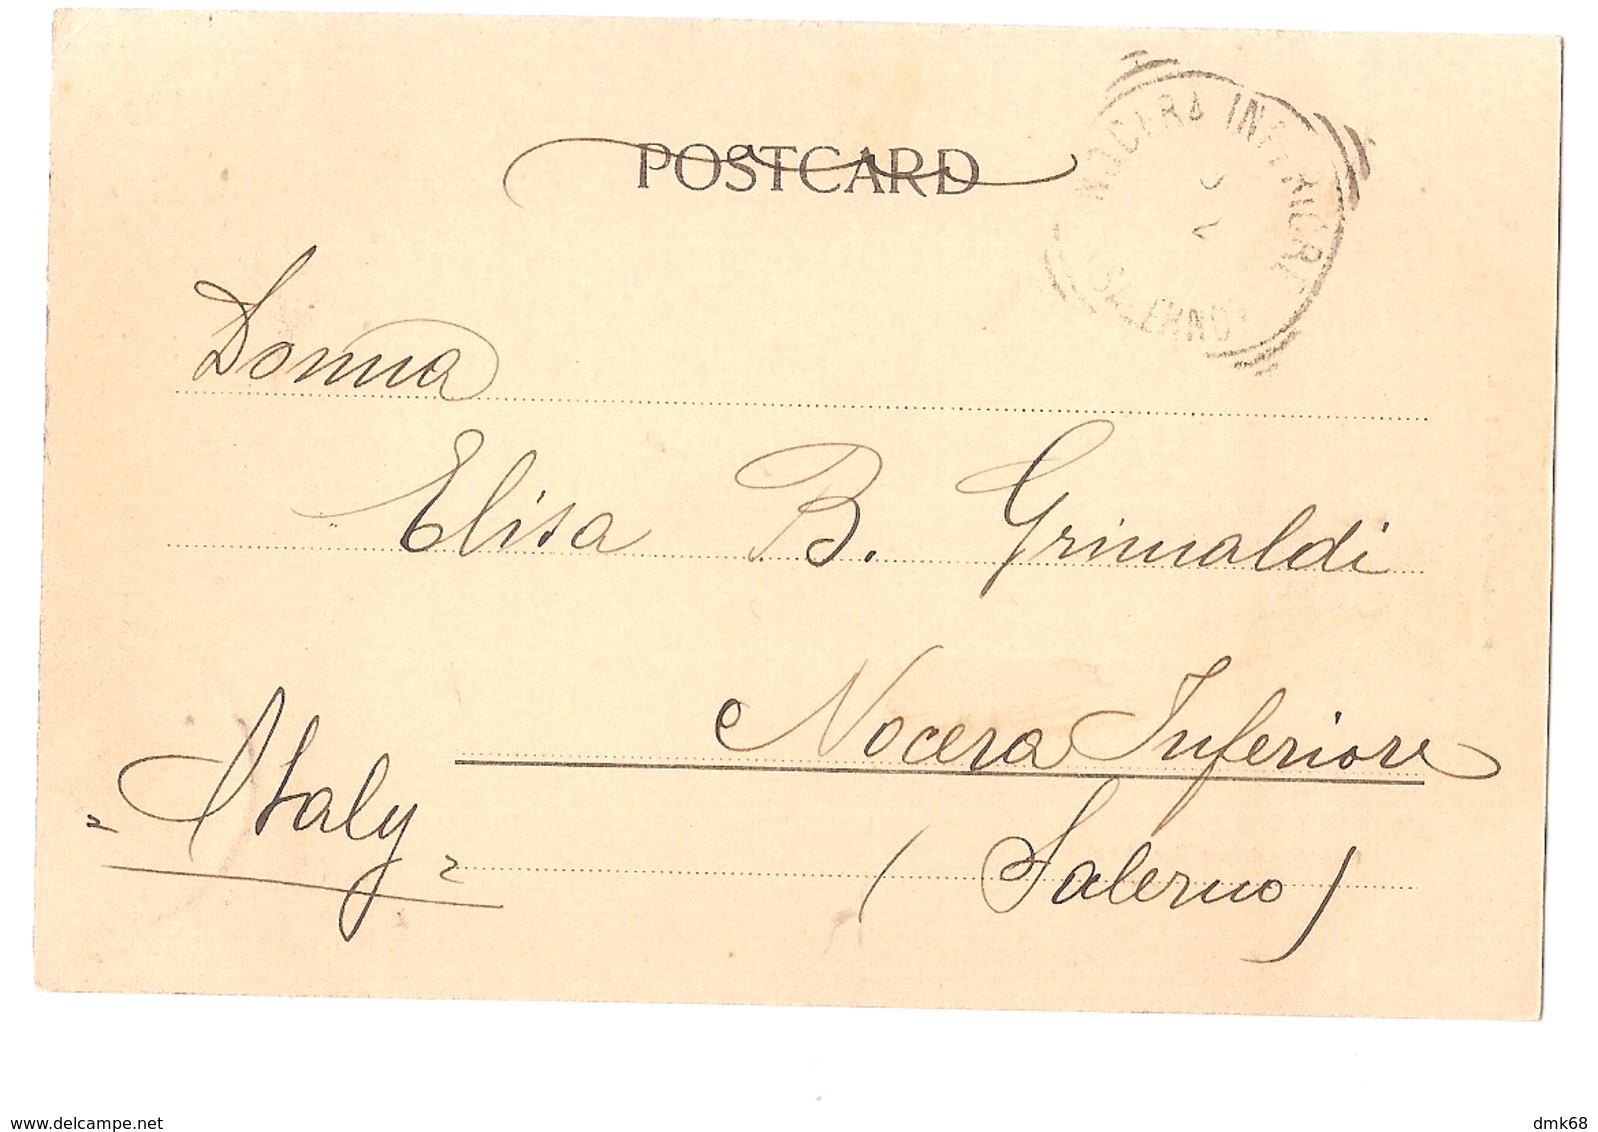 POSTCARD
NOCERA INFERIORE
(SALERNO)
Donna
Elisa B. Grimaldi
Nocera Inferiore
"Italy"
(Salerno)
www.delcampe.net
dmk68